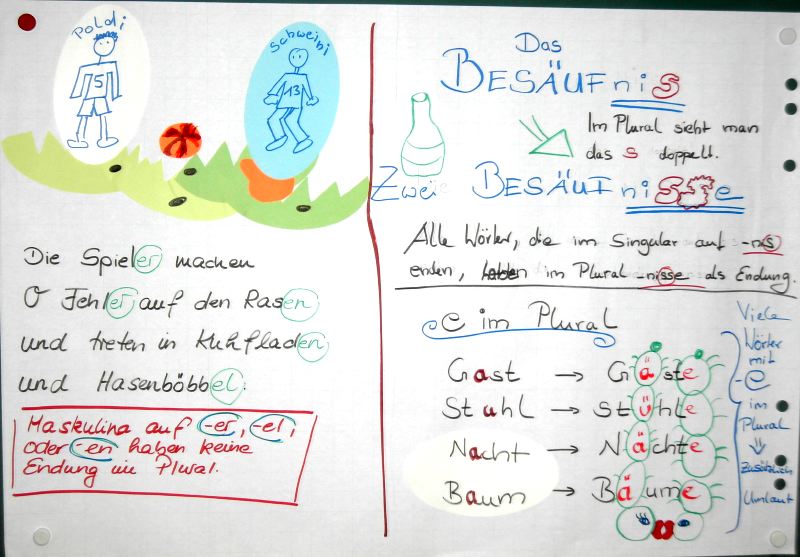 Poldi
5
Schweini
13
Die Spieler machen
0 Fehler auf den Rasen
und treten in Kuhfladen
und Hasenböbbel.
Maskulina auf -er, -el,
oder -en haben keine
Endung im Plural.
Das
BESÄUFnis
Im Plural sieht man
das s doppelt.
Zwei BESÄUFnisse
Alle Wörter, die im Singular auf -nis
enden, haben im Plural -nisse als Endung.
e im Plural
Gast → Gäste
Stuhl → Stühle
Nacht → Nächte
Baum → Bäume
Viele
Wörter
mit
-e
im
Plural
⇓
zusätzlich
Umlaut